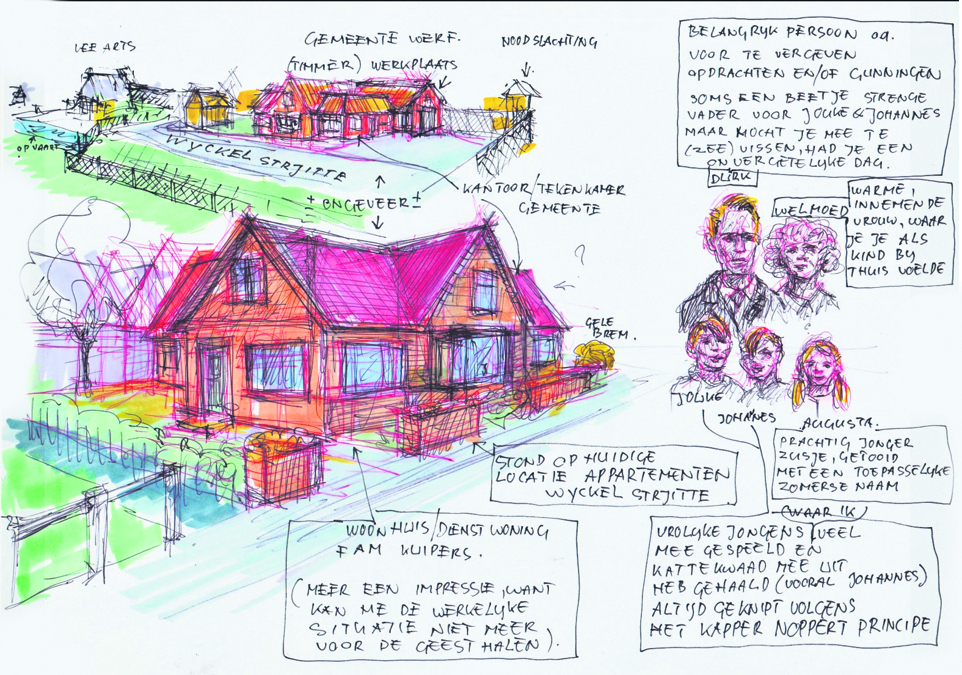 LEE ARTS
GEMEENTE WERF.
(TIMMER) WERKPLAATS
NOODSLACHTING
OPVAART
WYCKEL STRJITTE
± ONGEVEER ±
KANTOOR/TEKENKAMER
GEMEENTE
?
GELE
BREM.
BELANGRYK PERSOON O.A.
VOOR TE VERGEVEN
OPDRACHTEN EN/OF GUNNINGEN
SOMS EEN BEETJE STRENGE
VADER VOOR JOUKE & JOHANNES
MAAR MOCHT JE MEE TE
(ZEE) VISSEN, HAD JE EEN
ONVERGETELYKE DAG.
DLIRK
WELMOED
WARME,
INNEMENDE
VROUW, WAAR
JE JE ALS
KIND BY
THUIS VOELDE
JOUKE
JOHANES
AUGUSTA.
PRACHTIG JONGER
ZUSJE, GETOOID
MET EEN TOEPASSELYKE
ZOMERSE NAAM
STOND OP HUIDIGE
LOCATIE APPARTEMENTEN
WYCKEL STRJITTE
WOONHUIS/DIENSTWONING
FAM KUIPERS.
(MEER EEN IMPRESSIE, WANT
KAN ME DE WERKELYKE
SITUATIE NIET MEER
VOOR DE GEEST HALEN).
(WAAR IK)
VROLYKE JONGENS VEEL
MEE GESPEELD EN
KATTEKWAAD MEE UIT
HEB GEHAALD (VOORAL JOHANNES)
ALTYD GEKNIPT VOLGENS
HET KAPPER NOPPERT PRINCIPE